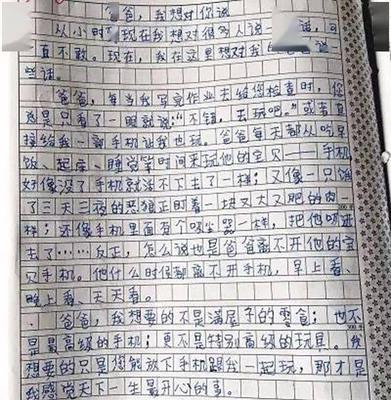 爸爸，我想对你说
从小时 现在我想对很多人说 话，可
直不敢。现在，我在这里想对我的 说
些话。
爸爸，每当我写完作业去给您检查时，你
总是只看了一眼就说：“不错，去玩吧。”或者直
接给我一部手机让我也玩。爸爸每天都从吃早
饭、起床、睡觉等时间来玩他的宝贝——手机
好像没了手机就活不下去了一样；又像一只饿
了三天三夜的恶狼正盯着一块又大又肥的肉
样；还像手机里面有个吸尘器一样，把他吸进
去了……反正，怎么说也是爸爸离不开他的宝
贝手机。他什么时候都离不开手机，早上看、
晚上看、天天看。
爸爸，我想要的不是满屋子的零食；也不
是最高级的手机；更不是特别高级的玩具。我
想要的只是您能放下手机跟我一起玩，那才是
我感觉天下一生最开心的事。